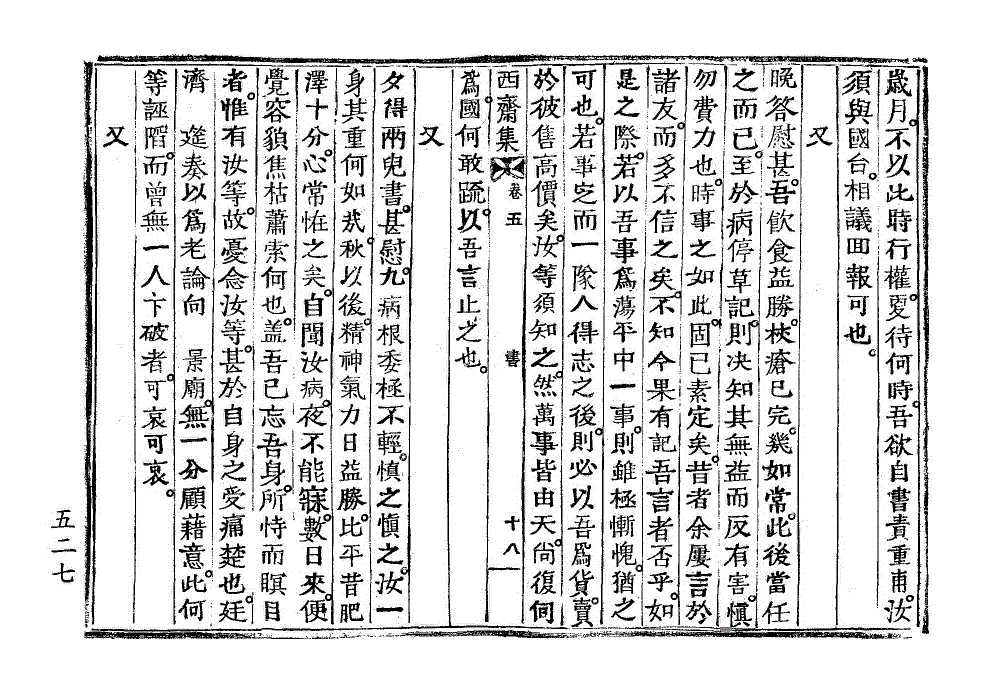 歲月。不以此時行權。更待何時。吾欲自書責重甫。汝
須與國台。相議回報可也。
又
晩答慰甚。吾飮食益勝。梜瘡已完。幾如常。此後當任
之而已。至於病停草記。則决知其無益而反有害。愼
勿費力也。時事之如此。固已素定矣。昔者余屢言於
諸友。而多不信之矣。不知今果有記吾言者否乎。如
是之際。若以吾事爲蕩平中一事。則雖極慚愧。猶之
可也。若事定而一隊人得志之後。則必以吾爲貨。賣
於彼售高價矣。汝等須知之。然萬事皆由天。尙復何
西齋集 卷五 書 十八
爲。國何敢疏。以吾言止之也。
又
夕得兩兒書。甚慰。九病根委極不輕。愼之愼之。汝一
身其重何如哉。秋以後。精神氣力日益勝。比平昔肥
澤十分。心常恠之矣。自聞汝病。夜不能寐。數日來。便
覺容貌焦枯蕭索何也。盖吾已忘吾身。所恃而瞑目
者。惟有汝等。故憂念汝等。甚於自身之愛痛楚也。廷
濟 筵奏以爲老論向 景廟。無一分顧藉意。此何
等誣陷。而曾無一人卞破者。可哀可哀。
又
五二七